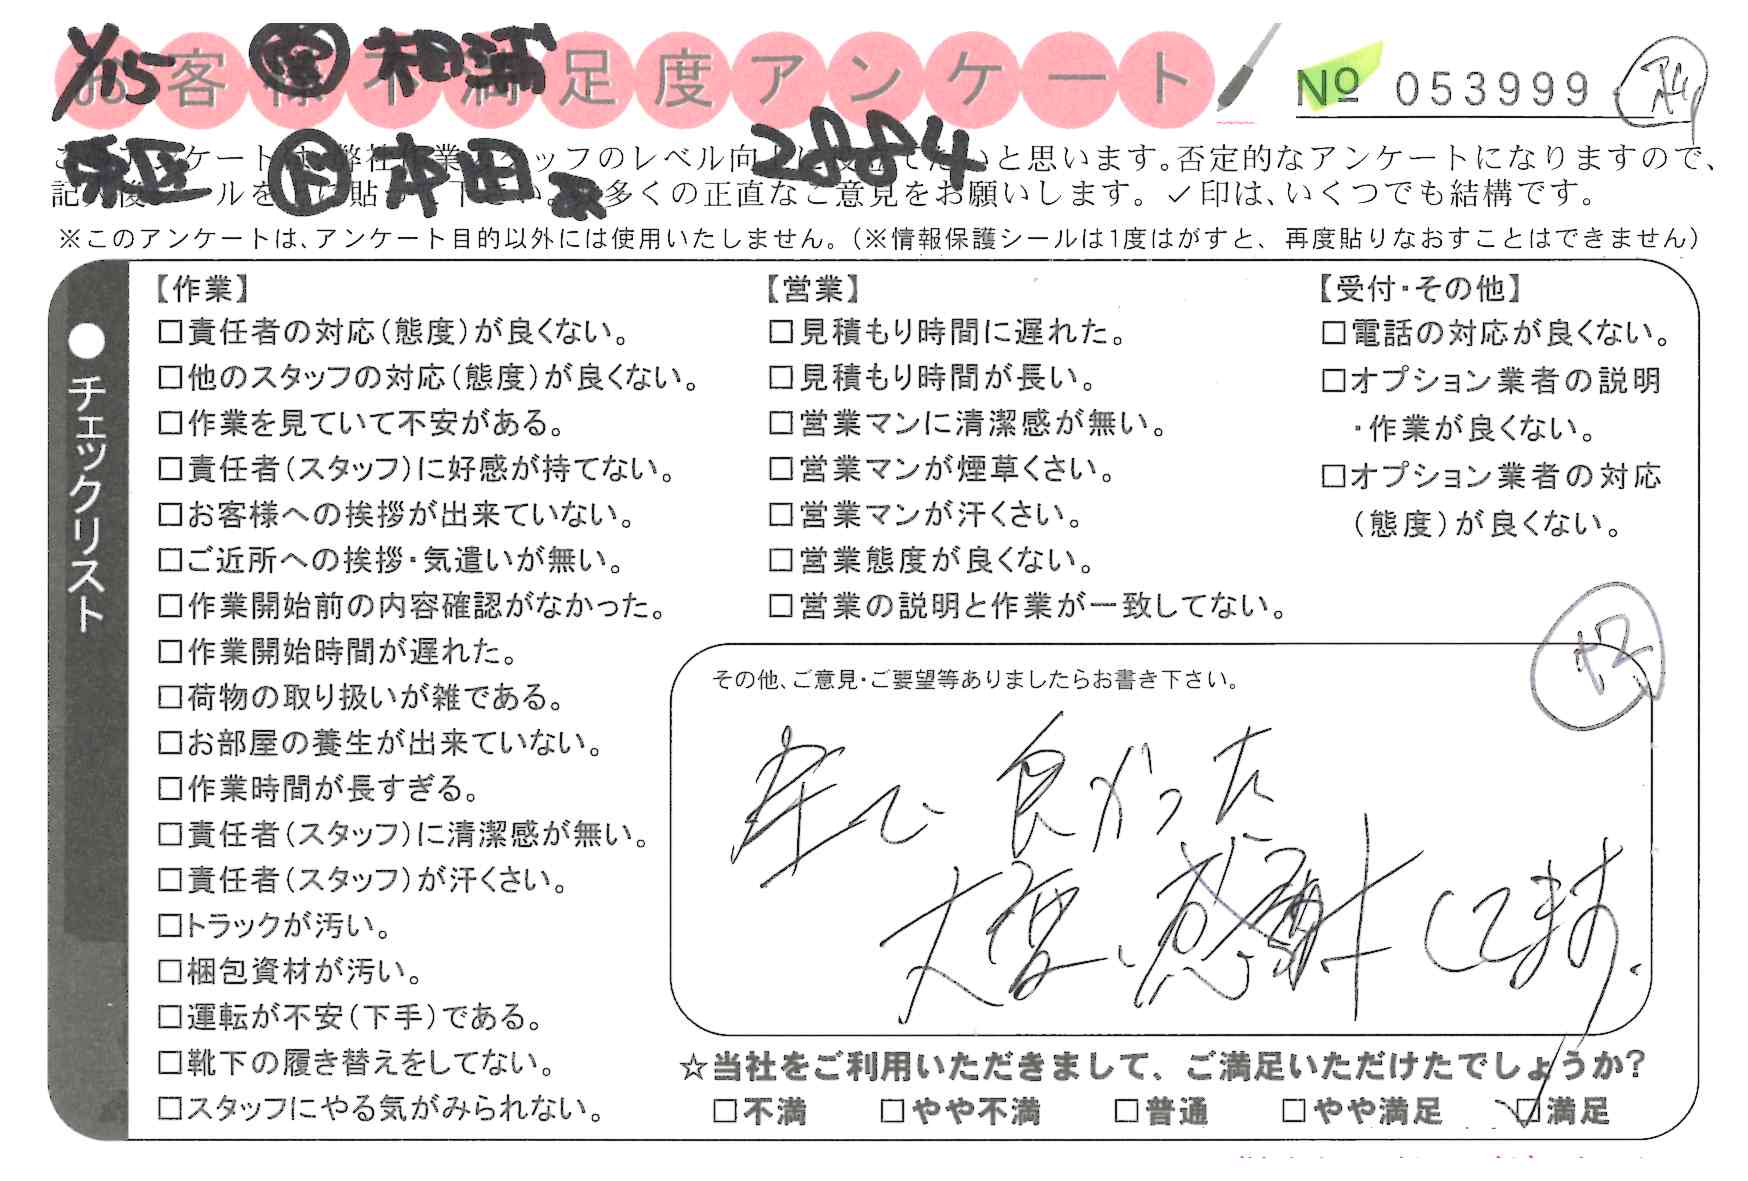 1/15 営 相浦
お客様不満足度アンケート
№ 053999
栄区 沖田 2884
このアンケートは、弊社作業スタッフのレベル向上に役立てたいと思います。否定的なアンケートになりますので、
記入後シールを上に貼って下さい。数多くの正直なご意見をお願いします。✓印は、いくつでも結構です。
※このアンケートは、アンケート目的以外には使用いたしません。(※情報保護シールは1度はがすと、再度貼りなおすことはできません)
●チェックリスト
【作業】
□責任者の対応(態度)が良くない。
□他のスタッフの対応(態度)が良くない。
□作業を見ていて不安がある。
□責任者(スタッフ)に好感が持てない。
□お客様への挨拶が出来ていない。
□ご近所への挨拶・気遣いが無い。
□作業開始前の内容確認がなかった。
□作業開始時間が遅れた。
□荷物の取り扱いが雑である。
□お部屋の養生が出来ていない。
□作業時間が長すぎる。
□責任者(スタッフ)に清潔感が無い。
□責任者(スタッフ)が汗くさい。
□トラックが汚い。
□梱包資材が汚い。
□運転が不安(下手)である。
□靴下の履き替えをしてない。
□スタッフにやる気がみられない。
【営業】
□見積もり時間に遅れた。
□見積もり時間が長い。
□営業マンに清潔感が無い。
□営業マンが煙草くさい。
□営業マンが汗くさい。
□営業態度が良くない。
□営業の説明と作業が一致してない。
【受付・その他】
□電話の対応が良くない。
□オプション業者の説明
・作業が良くない。
□オプション業者の対応
(態度)が良くない。
+2
その他、ご意見・ご要望等ありましたらお書き下さい。
で良かった
大変、感謝してます。
☆当社をご利用いただきまして、ご満足いただけたでしょうか?
□不満 □やや不満 □普通 □やや満足 ☑満足